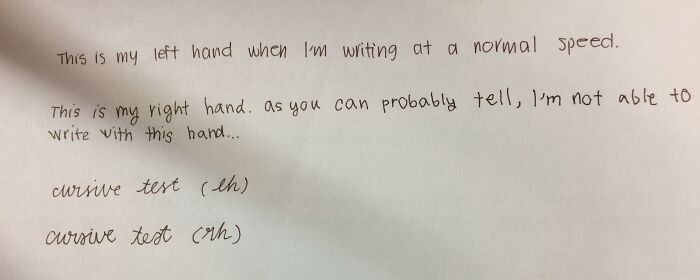 This is my left hand when I'm writing at a normal speed.
This is my right hand. as you can probably tell, I'm not able to
write with this hand...
cursive test (lh)
cursive test (rh)